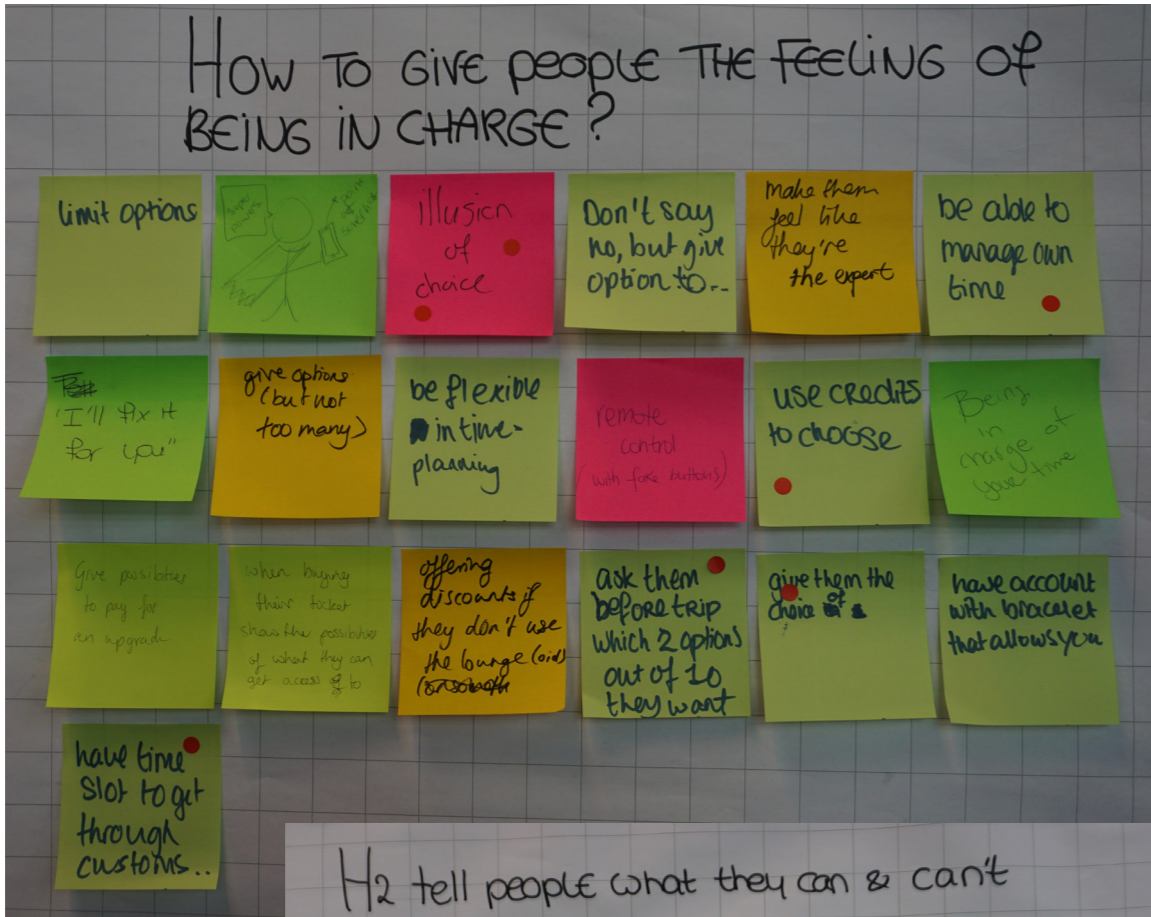 HOW TO GIVE PEOPLE THE FEELING OF
BEING IN CHARGE?
limit options
super
powers
point
of
illusion
of
choice
Don't say
no, but give
option to...
make them
feel like
they're
the expert
be able to
manage own
time
"I'll fix it
for you"
give options
(but not
too many)
be flexible
in time-
planning
remote
control
(with fake buttons)
use credits
to choose
Being
in
charge of
your time
Give possibilities
to pay for
an upgrade
when buying
their ticket
show the possibilities
of what they can
get access to
offering
discounts if
they don't use
the lounge
ask them
before trip
which 2 options
out of 10
they want
give them the
choice of
have account
with bracelet
that allows you
have time
slot to get
through
customs..
H2 tell people what they can & can't